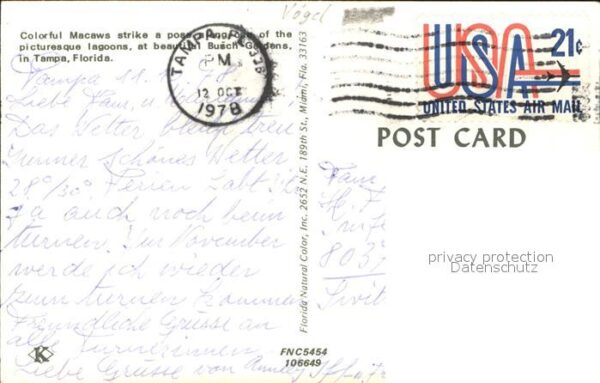 Vögel
Colorful Macaws strike a pose along one of the
picturesque lagoons, at beautiful Busch Gardens,
in Tampa, Florida.
TAMPA, FL 336
PM
12 OCT
1978
USA 21c
UNITED STATES AIR MAIL
POST CARD
Tampa 11.
Liebe Fam. u.
Das Wetter bleibt treu
immer schönes Wetter
28°/30° Ferien habt Ihr
ja auch noch beim
turnen. Im November
werde ich wieder
zum turnen kommen
Freundliche Grüsse an
alle Turnerinnen
Liebe Grüsse von
Florida Natural Color, Inc. 2652 N.E. 189th St., Miami, Fla. 33163
Fam
803
privacy protection
Datenschutz
K
FNC5454
106649